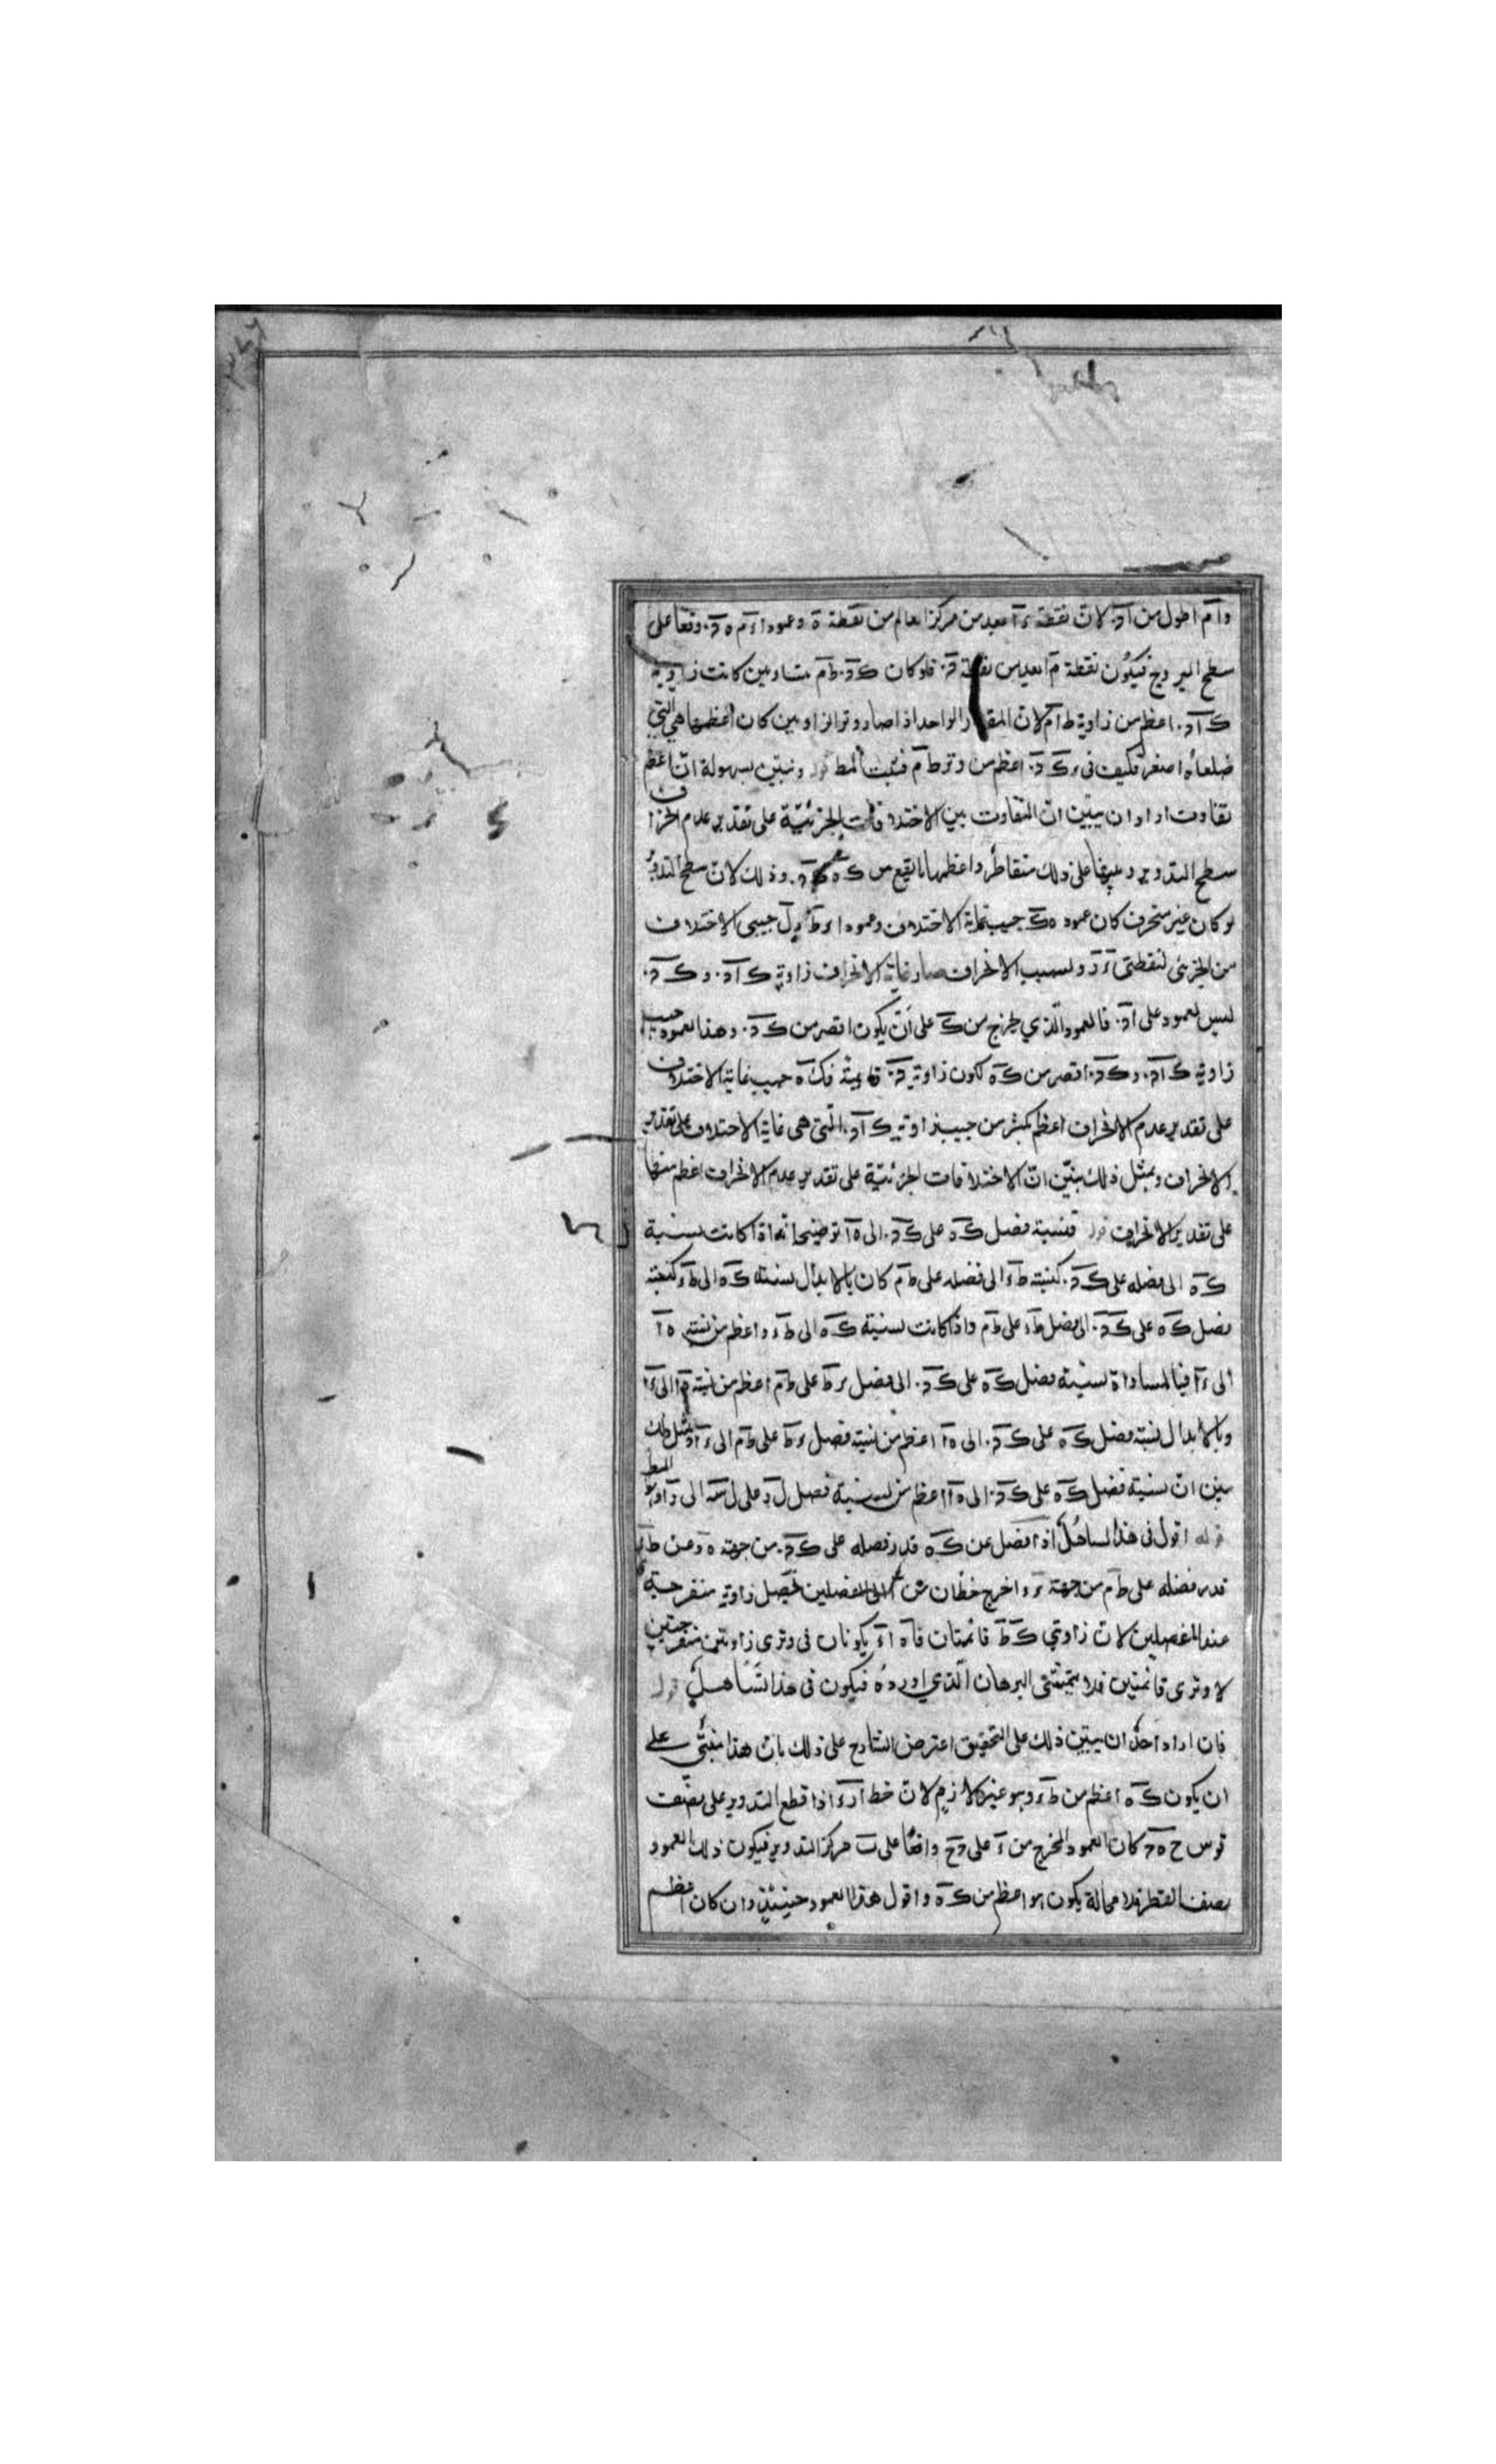 وام اطول من اد لان نقطة ء ابعد من مركز العالم من نقطة ه وعمودا ءم ه د وقعا على
سطح البروج فيكون نقطة م ابعد من نقطة د فلو كان كد طم متساويين كانت زاوية
كاد اعظم من زاوية طام لان المقدار الواحد اذا صار وترا لزاويتين كان اعظمها هي التي
ضلعاه اصغر فكيف في كد اعظم من وتر طم فثبت المط قوله ونبين بسهولة ان اعظم
تفاوت اراد ان يبين ان التفاوت بين الاختلافات الجزئية على تقدير عدم انحراف
سطح التدوير وغيرها على ذلك متقاطر واعظمها ما يقع من كه كد وذلك لان سطح التدوير
لو كان غير منحرف كان عمود ه ك جيب غاية الاختلاف وعمودا ء ط د ل جيبي الاختلاف
من الجزئي لنقطتي ء ر وبسبب الانحراف صار غاية الانحراف زاوية كاد و كد
ليس بعمود على اد فالعمود الذي يخرج من ك على اد يكون اقصر من كد وهذا العمود جيب
زاوية كاد و كد اقصر من كه لكون زاوية د قائمة فكه جيب غاية الاختلاف
على تقدير عدم الانحراف اعظم بكثير من جيب زاوية كاد التي هي غاية الاختلاف على تقدير
الانحراف وبمثل ذلك يتبين ان الاختلافات الجزئية على تقدير عدم الانحراف اعظم منها
على تقدير الانحراف قوله فنسبة فضل كه على كد الى ه ا توضيحه انه اذا كانت نسبة
كه الى فضله على كد كنسبة طء الى فضله على طم كان بالابدال نسبة كه الى طء كنسبة
فضل كه على كد الى فضل طء على طم واذا كانت نسبة كه الى طء اعظم من نسبة ه ا
الى ء ا فبالمساواة نسبة فضل كه على كد الى فضل ء ط على طم اعظم من نسبة ه ا الى ء ا
وبالابدال نسبة فضل كه على كد الى ه ا اعظم من نسبة فضل ء ط على طم الى ء ا وبمثل ذلك
يتبين ان نسبة فضل كه على كد الى ه ا اعظم من نسبة فضل ل ر على ل س الى ر ا وهو المط
قوله اقول في هذا تساهل اذ افضل عن كه قدر فضله على كد من جهة ه وعن طء
قدر فضله على طم من جهة ء واخرج خطان من ا الى المفصلين تحصل زاوية منفرجة
عند المفصلين لان زاويتي ك ط قائمتان فاه اء يكونان في وتري زاويتين منفرجتين
لا وتري قائمتين فلا يتمشى البرهان الذي اورده فيكون في هذا تساهل قوله
فان اراد احد ان يبين ذلك على التحقيق اعترض الشارح على ذلك بان هذا مبني على
ان يكون كه اعظم من طء وهو غير لازم لان خط ا ر ء اذا قطع التدوير على نصف
قوس ح ه د كان العمود المخرج من ء على د ح واقعا على ب مركز التدوير فيكون ذلك العمود
نصف القطر فلا محالة يكون هو اعظم من كه واقول هذا العمود حينئذ وان كان اعظم